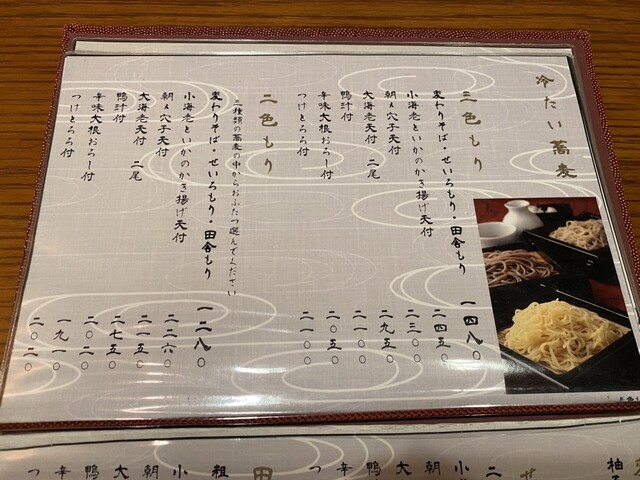 冷たい蕎麦
三色もり
変わりそば・せいろもり・田舎もり 一四八〇
小海老といかのかき揚げ天付 二四五〇
朝〆穴子天付 二三〇〇
大海老天付 二尾 二九五〇
鴨汁付 二一〇〇
辛味大根おろし付 二〇五〇
つけとろろ付 二一〇〇
二色もり
三種類の蕎麦の中からおふたつ選んでください
変わりそば・せいろもり・田舎もり 一二八〇
小海老といかのかき揚げ天付 二二六〇
朝〆穴子天付 二一五〇
大海老天付 二尾 二七五〇
鴨汁付 二〇二〇
辛味大根おろし付 一九一〇
つけとろろ付 二〇二〇
柚子
せ
二
小
朝
大
鴨
辛
つ
田
粗
小
朝
大
鴨
辛
つ